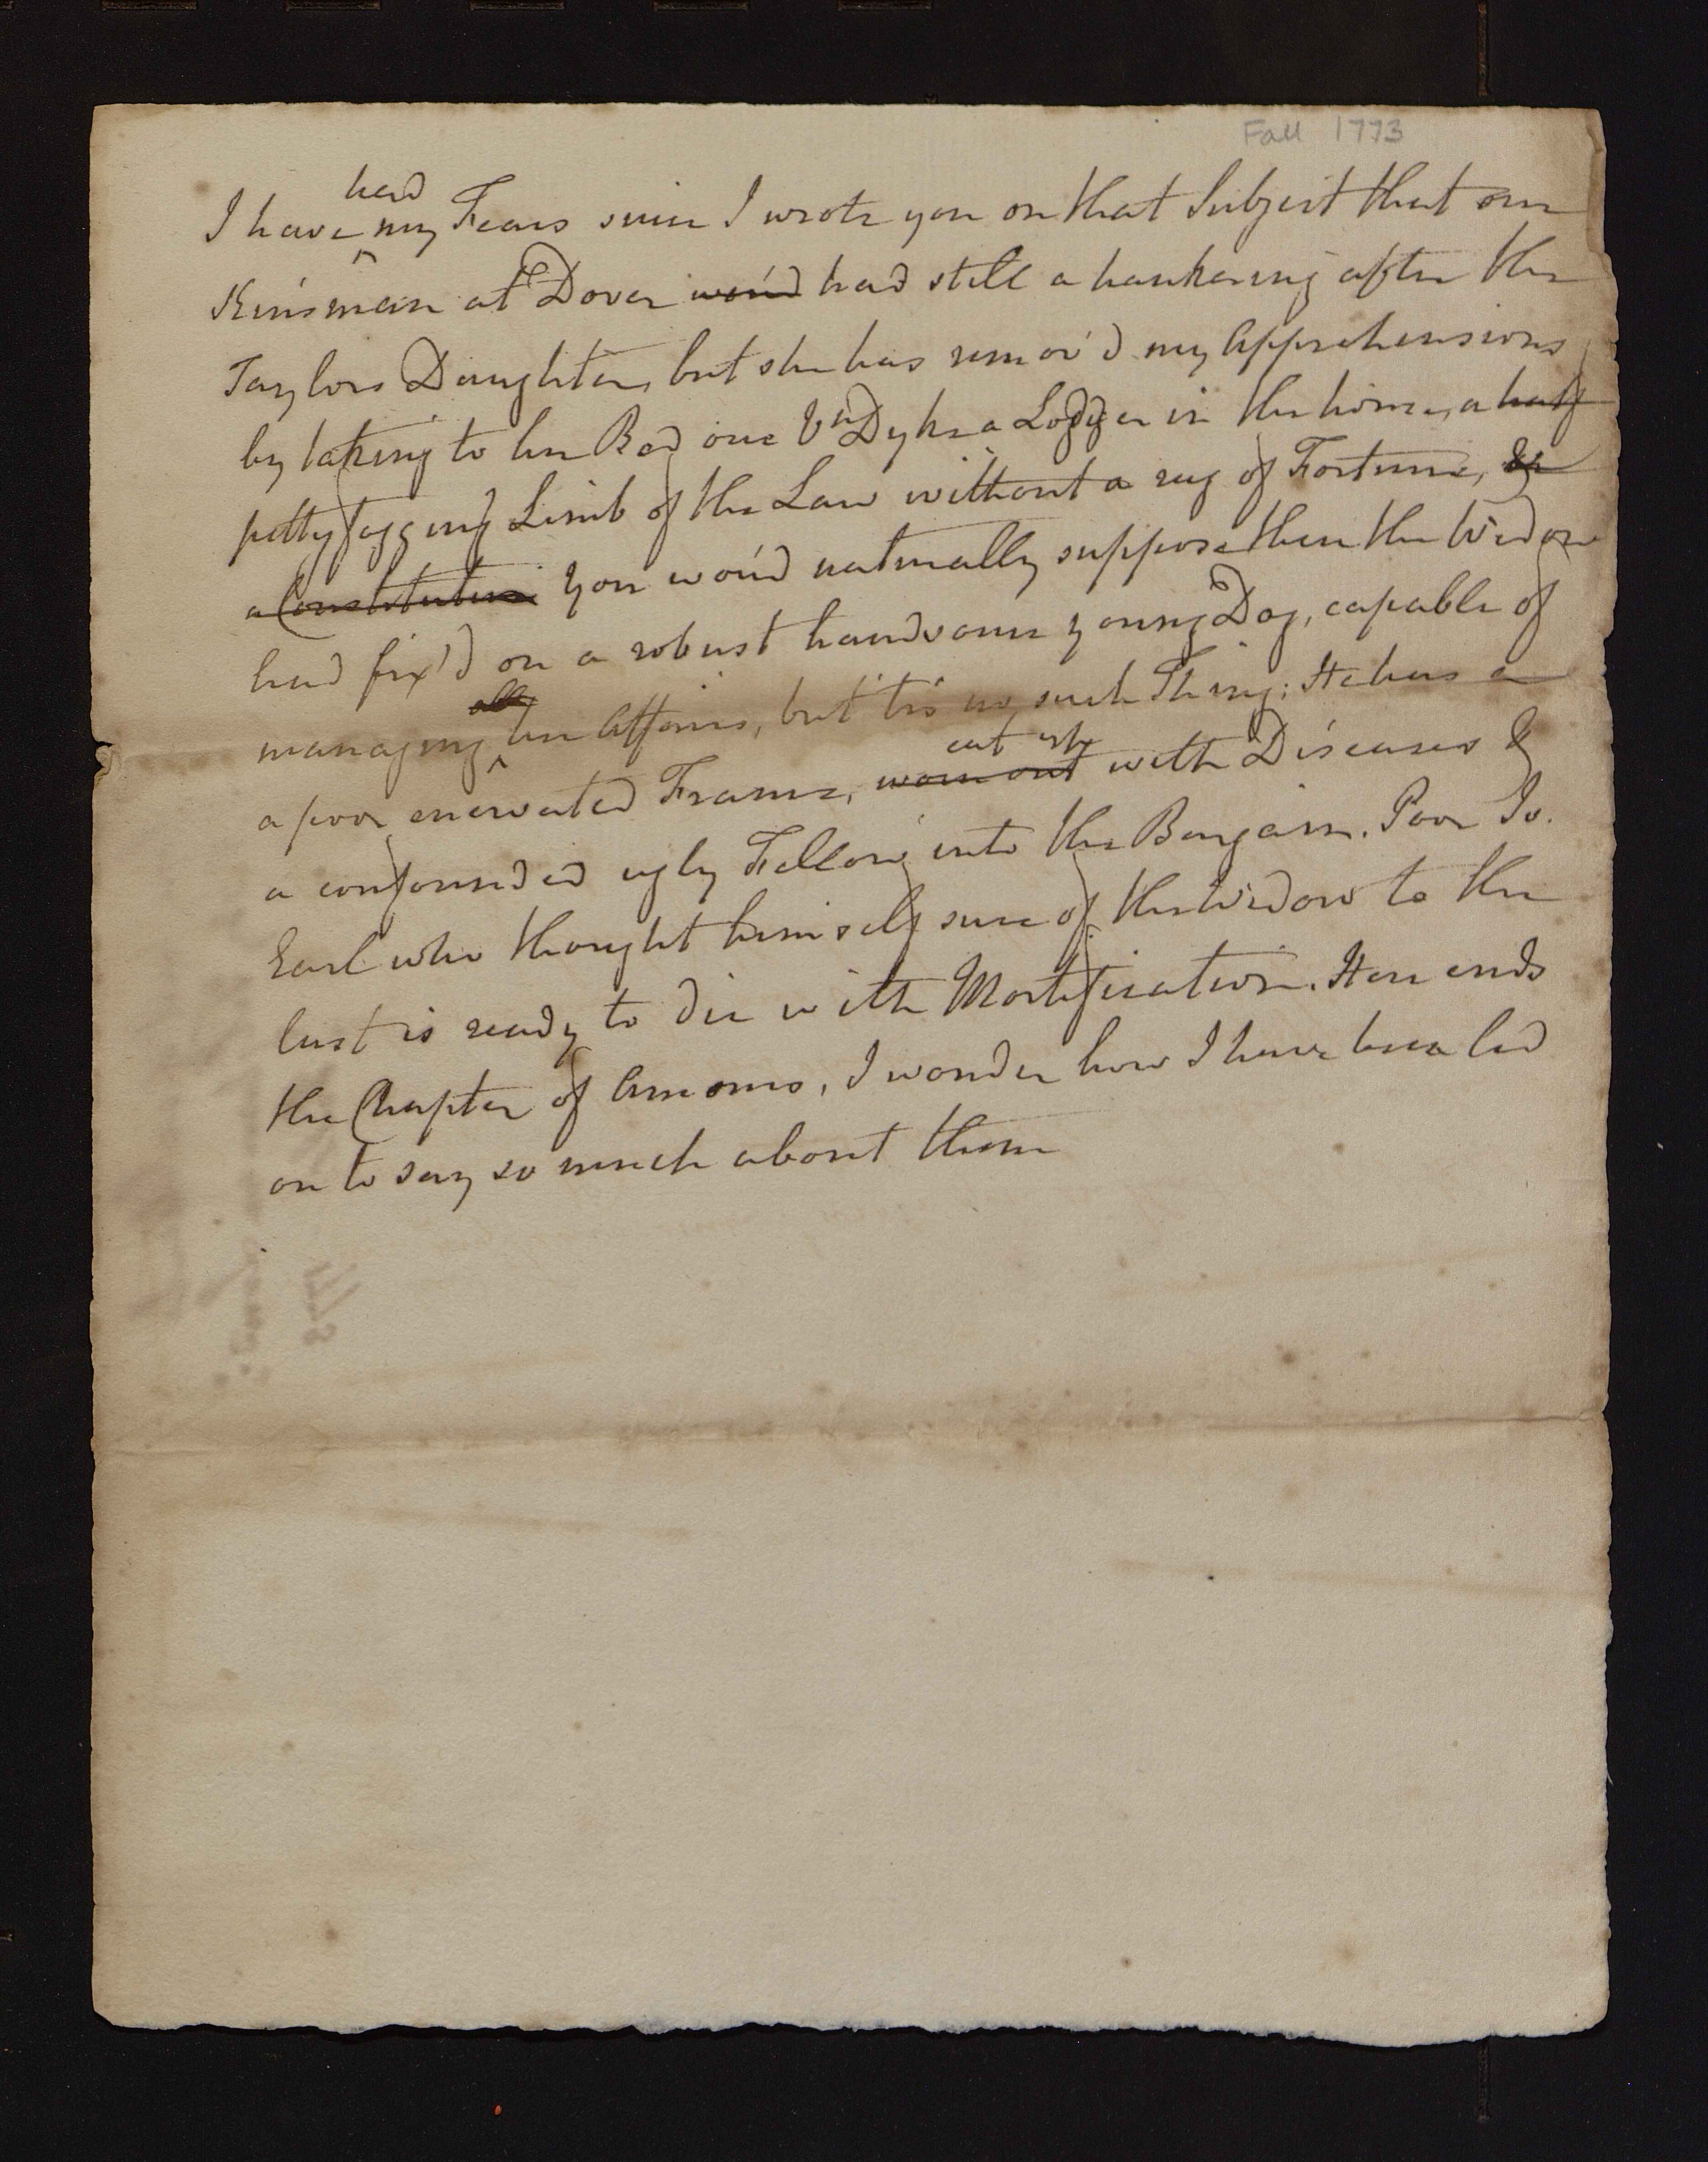 Fall 1773
had
I have my Fears since I wrote you on that Subject that our
Kinsman at Dover wou'd had still a hankering after the
Taylors Daughter, but she has remov'd my Apprehensions
by taking to her Bed one Vn Dyke a Lodger in the house, a half
pettyfogging Limb of the Law without a rag of Fortune, or
a Constitution you wou'd naturally suppose then the Widow
had fix'd on a robust handsome young Dog, capable of
all
managing her Affairs, but tis no such Thing; He has a
eat up
a poor enervated Frame, worn out with Diseases &
a confounded ugly Fellow into the Bargain. Poor Jo.
Earl who thought himself sure of the Widow to the
last is ready to die with Mortification. Here ends
the Chapter of Amours, I wonder how I have been led
on to say so much about them